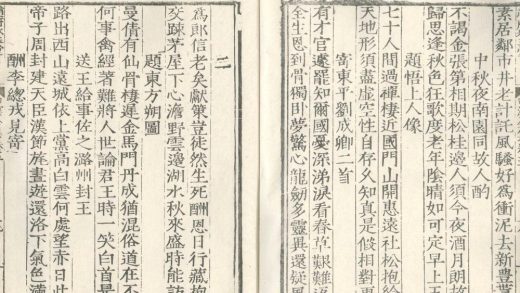 素居鄰市井老計託風騷好為衝泥去新豐
中秋夜南園同故人酌
不謁金張第相期松桂邊人須今夜酒月朗故
歸思逢秋色狂歌度老年陰晴如可定早上王
題悟上人像
七十人間過禪棲近國門山開惠遠社松抱給
天地形須盡虛空性自存久知真是假相對更
寄東平劉成卿二首
有才官遽罷知爾國憂深涕淚看春草艱難返
全生恩到骨獨卧夢驚心龍劒多靈異還疑風
二
為郎信老矣獻策豈徒然生死酬恩日行藏抱
交疎茅屋下心澹野雲邊湖水秋來盛時能訪
題東方朔圖
曼倩有仙骨棲遲金馬門丹成猶混俗道在不
何事禽經著難將人世論君王時一笑白首是
送王給事佐之潞州封王
路出西山遠城依上黨高白雲何處望赤日此
帝子周封建天臣漢節旄晝遊還洛下氣色滿
酬李總戎見寄